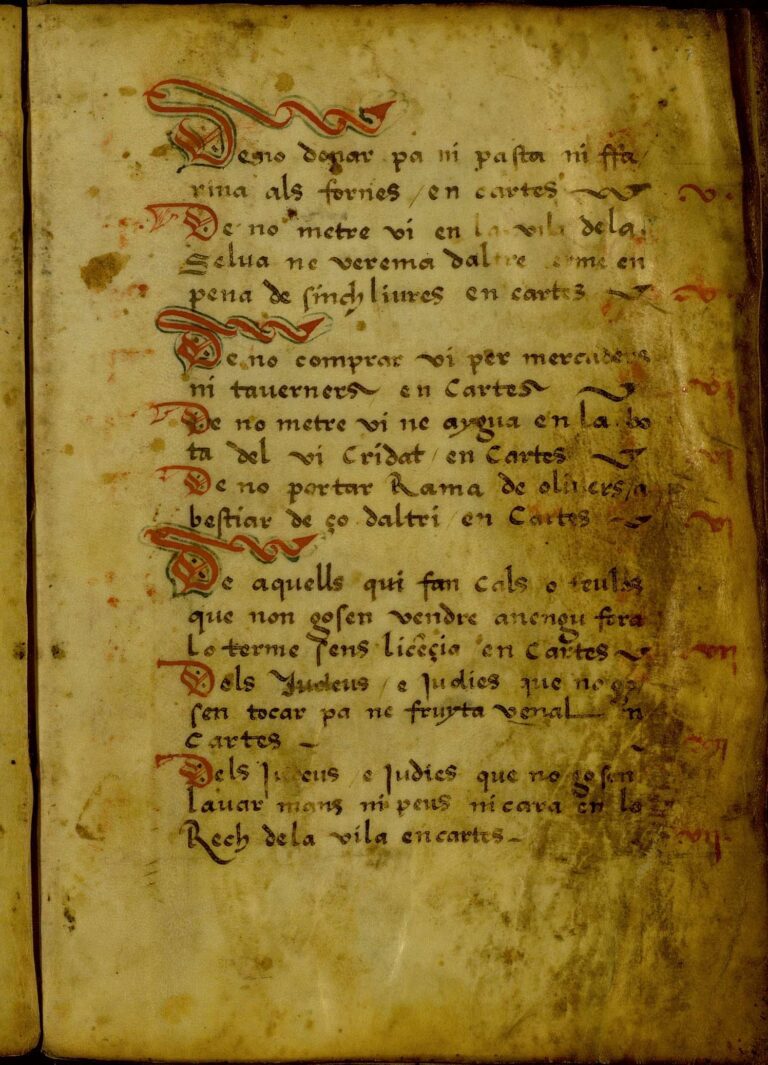 De no donar pa ni pasta ni ffa/
rina als fornes / en cartes
De no metre vi en la vila dela
Selua ne verema daltre terme en
pena de sinch liures en cartes
De no comprar vi per mercaders
ni taverners en Cartes
De no metre vi ne aygua en la bo
ta del vi Cridat / en Cartes
De no portar Rama de oliuers / a
bestiar de ço daltri / en Cartes
De aquells qui fan Cals o teules
que non gosen vendre anengu fora
lo terme sens licẽçia en Cartes
Dels Judeus / e Judies que no go
sen tocar pa ne fruyta venal en
Cartes
Dels Judeus / e Judies que no gosen
lauar mans ni peus ni cara en lo
Rech dela vila en cartes